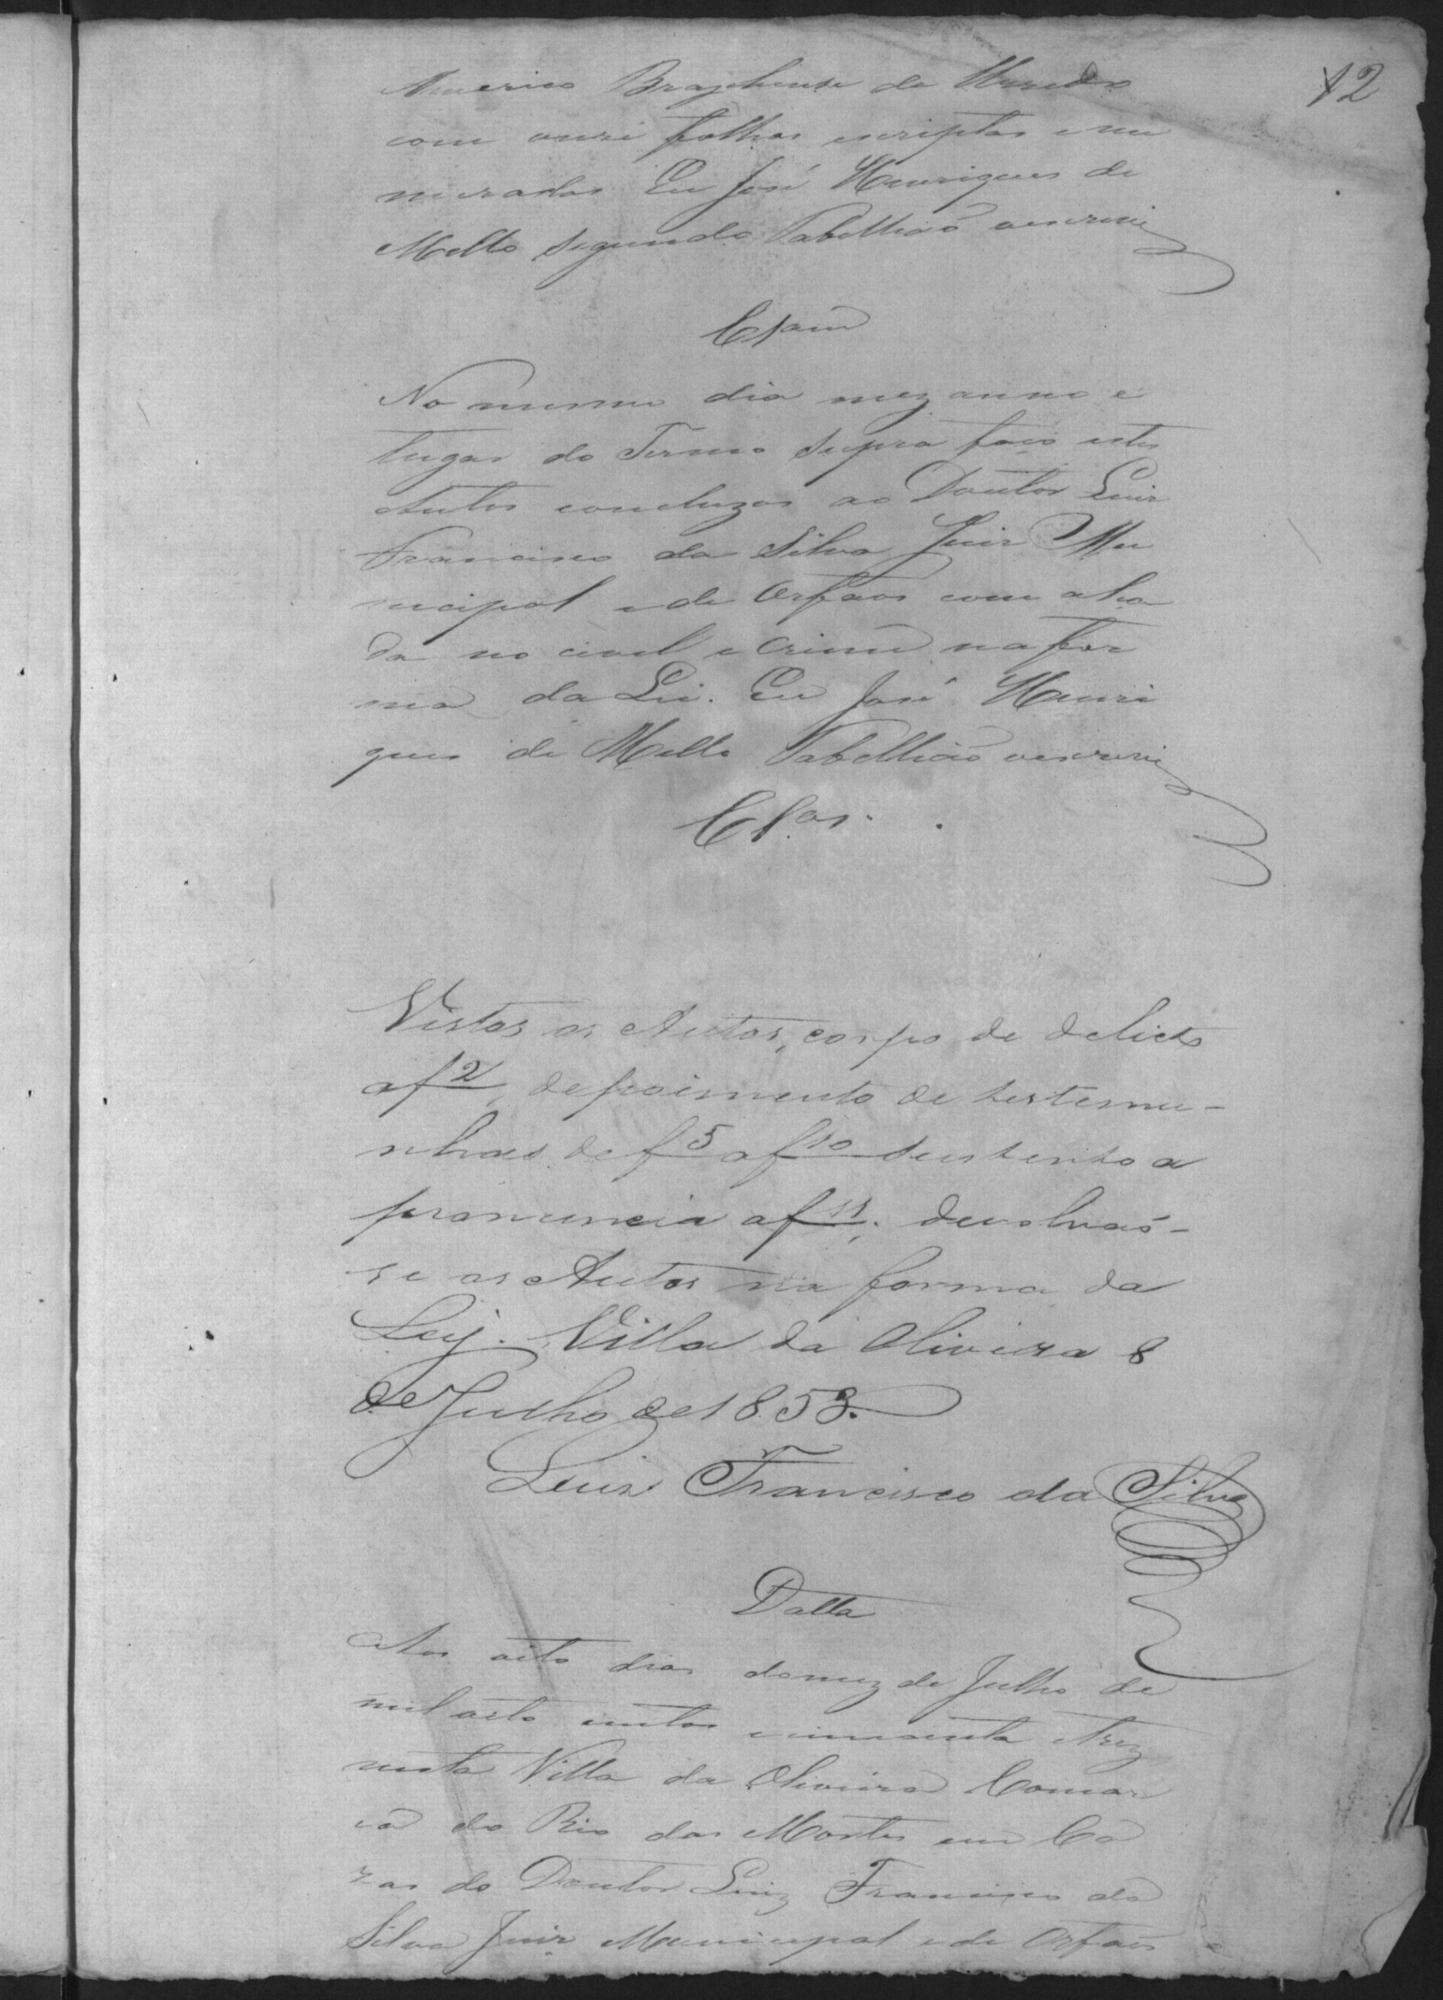 12
Americo Brazilense de Macedo
com onze folhas escriptas e nu
meradas Eu José Henriques de
Mello segundo Tabellião o escrevi
Clsam
No mesmo dia mez anno e
lugar do Termo supra faço estes
Autos concluzos ao Doutor Luiz
Francisco da Silva Juiz Mu
nicipal e de Orfaos com alsa
da no civel e crime na for
ma da Lei. Eu José Henri
ques de Mello Tabellião o escrevi
Clsos.
Vistos os Autos, corpo de delicto
a f 2, depoimento de testemu-
nhas de f 5 a f 10 sustento a
pronuncia a f 11; devolvaõ-
se os Autos na forma da
Ley. Villa da Oliveira 8
de Julho de 1853.
Luis Francisco da Silva
Datta
Aos oito dias do mez de Julho de
mil oito centos cincoenta e trez
nesta Villa da Oliveira Comar
ca do Rio das Mortes em Ca
zas do Doutor Luiz Francisco da
Silva Juiz Municipal e de Orfaos